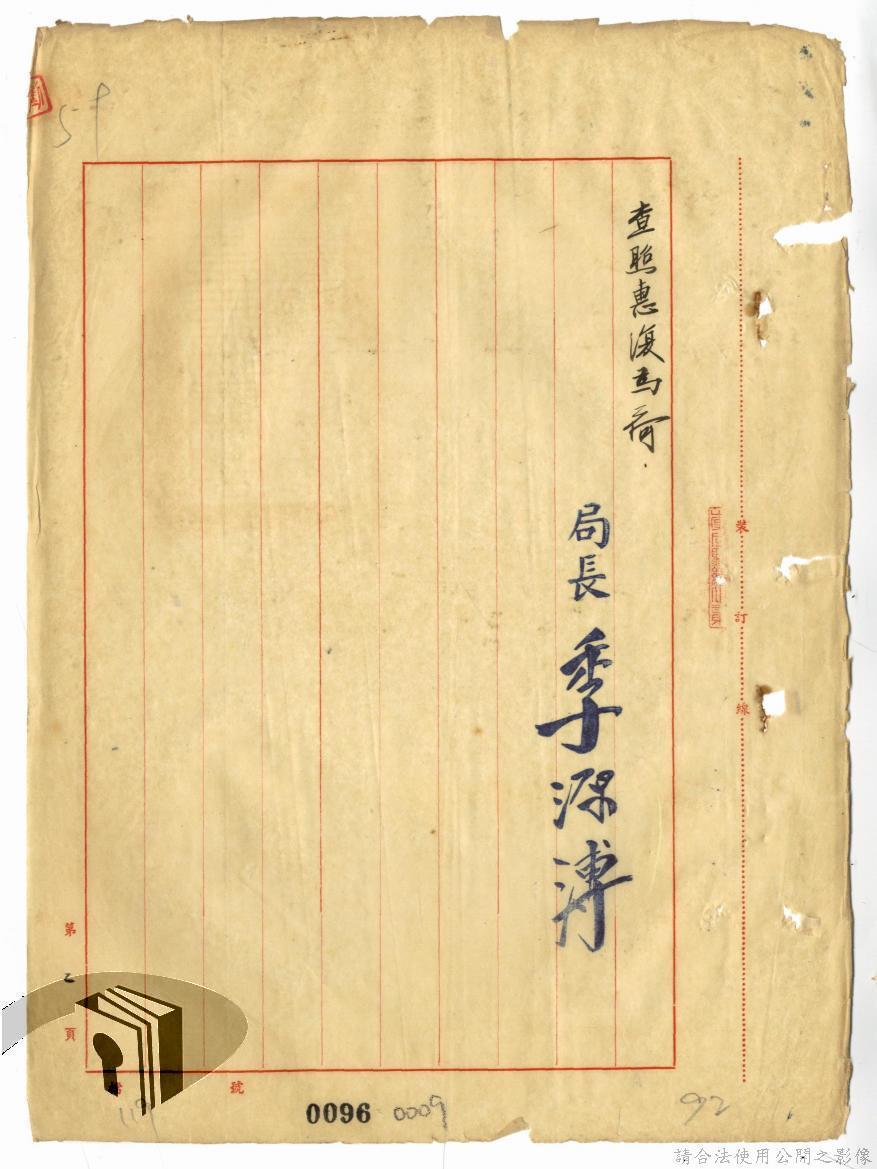 查照惠復為荷.
局長 季源溥
裝 訂 線
第 乙 頁
號
0096
0009
92
請合法使用公開之影像